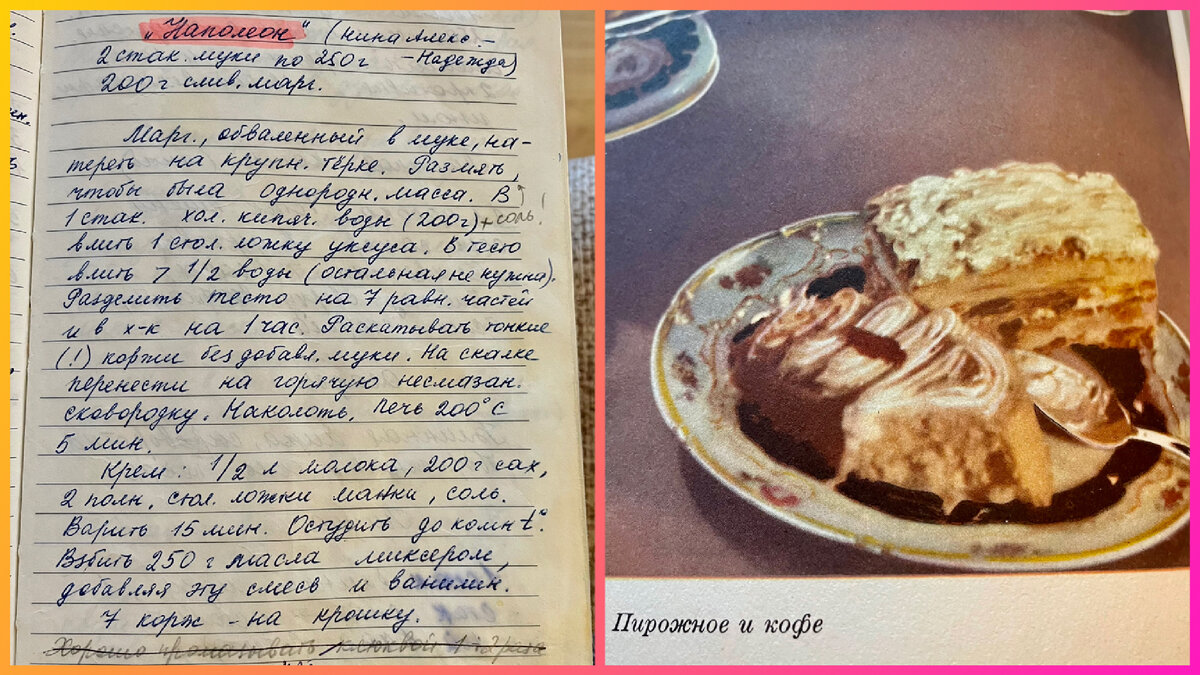 "Наполеон" (Нина Алекс.-
2 стак. муки по 250 г -Надежда)
200 г слив. марг.
Марг., обваленный в муке, на-
тереть на крупн. тёрке. Размять,
чтобы была однородн. масса. В
1 стак. хол. кипяч. воды (200г) + соль!
влить 1 стол. ложку уксуса. В тесто
влить > 1/2 воды (остальная не нужна).
Разделить тесто на 7 равн. частей
и в х-к на 1 час. Раскатывать тонкие
(!) коржи без добавл. муки. На скалке
перенести на горячую несмазан.
сковородку. Наколоть. Печь 200°С
5 мин.
Крем: 1/2 л молока, 200 г сах,
2 полн. стол. ложки манки, соль.
Варить 15 мин. Остудить до комн t°
Взбить 250 г масла миксером,
добавляя эту смесь и ванилин.
7 корж - на крошку.
Хорошо промазывать клюквой 1-2 раза
Пирожное и кофе